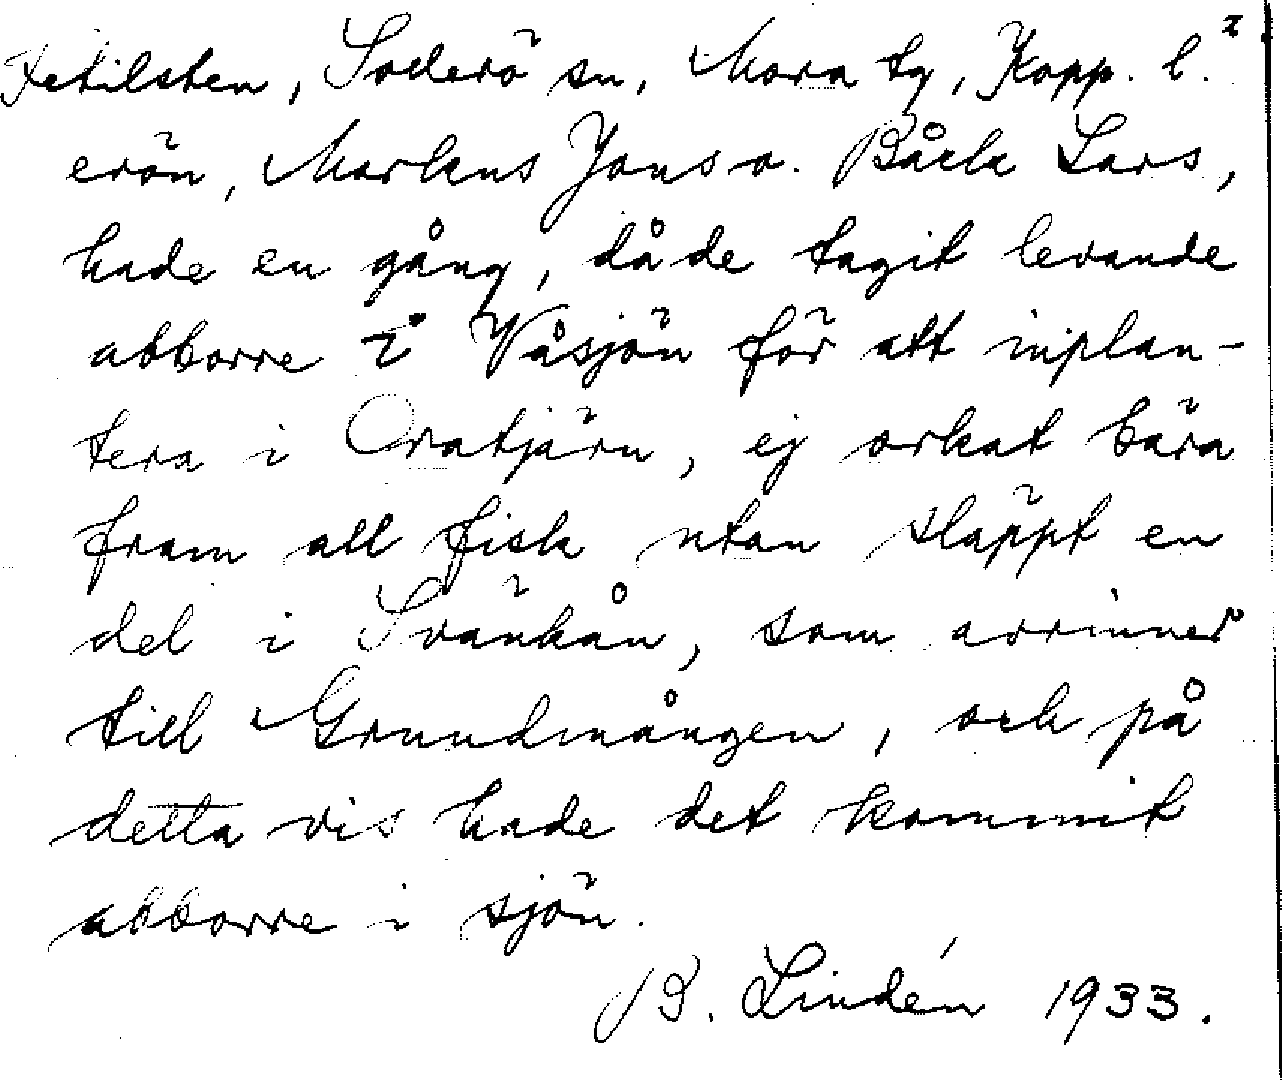 Ketilsten, Soderö sn, Mora tg, Kopp. l. 2
erön, Markus Jons o. Båck Lars,
hade en gång, då de tagit levande
abborre i Våsjön för att inplan-
tera i Oratjärn, ej orkat bära
fram all fisk utan släppt en
del i Svänkån, som avrinner
till Grundmången, och på
detta vis hade det kommit
abborre i sjön.
B. Lindén 1933.